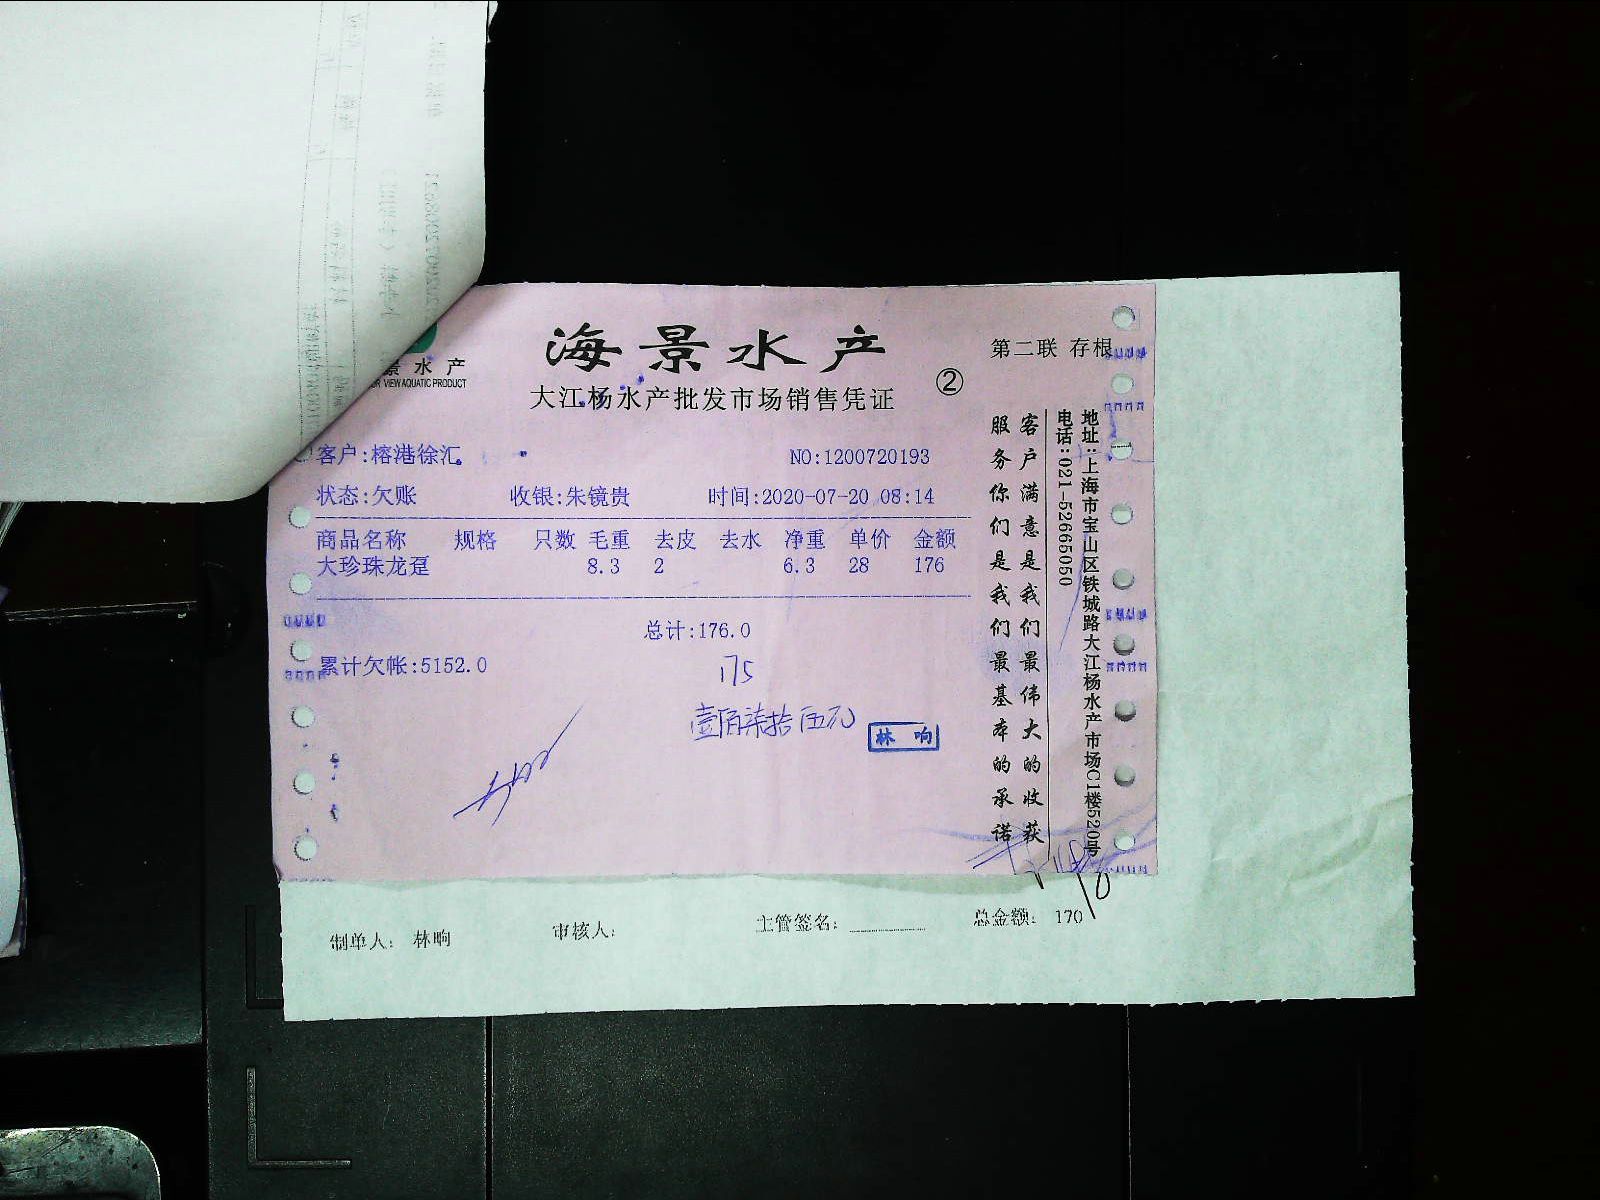 景水产
VIEW AQUATIC PRODUCT
海景水产
大江杨水产批发市场销售凭证
②
第二联 存根
客户:榕港徐汇
NO:1200720193
状态:欠账 收银:朱镜贵 时间:2020-07-20 08:14
商品名称 规格 只数 毛重 去皮 去水 净重 单价 金额
大珍珠龙趸 8.3 2 6.3 28 176
总计:176.0
累计欠帐:5152.0
175
壹佰柒拾伍元
林响
客户满意是我们最伟大的收获
服务你们是我们最基本的承诺
地址:上海市宝山区铁城路大江杨水产市场C1楼520号
电话:021-52665050
制单人: 林响 审核人: 主管签名: 总金额: 170